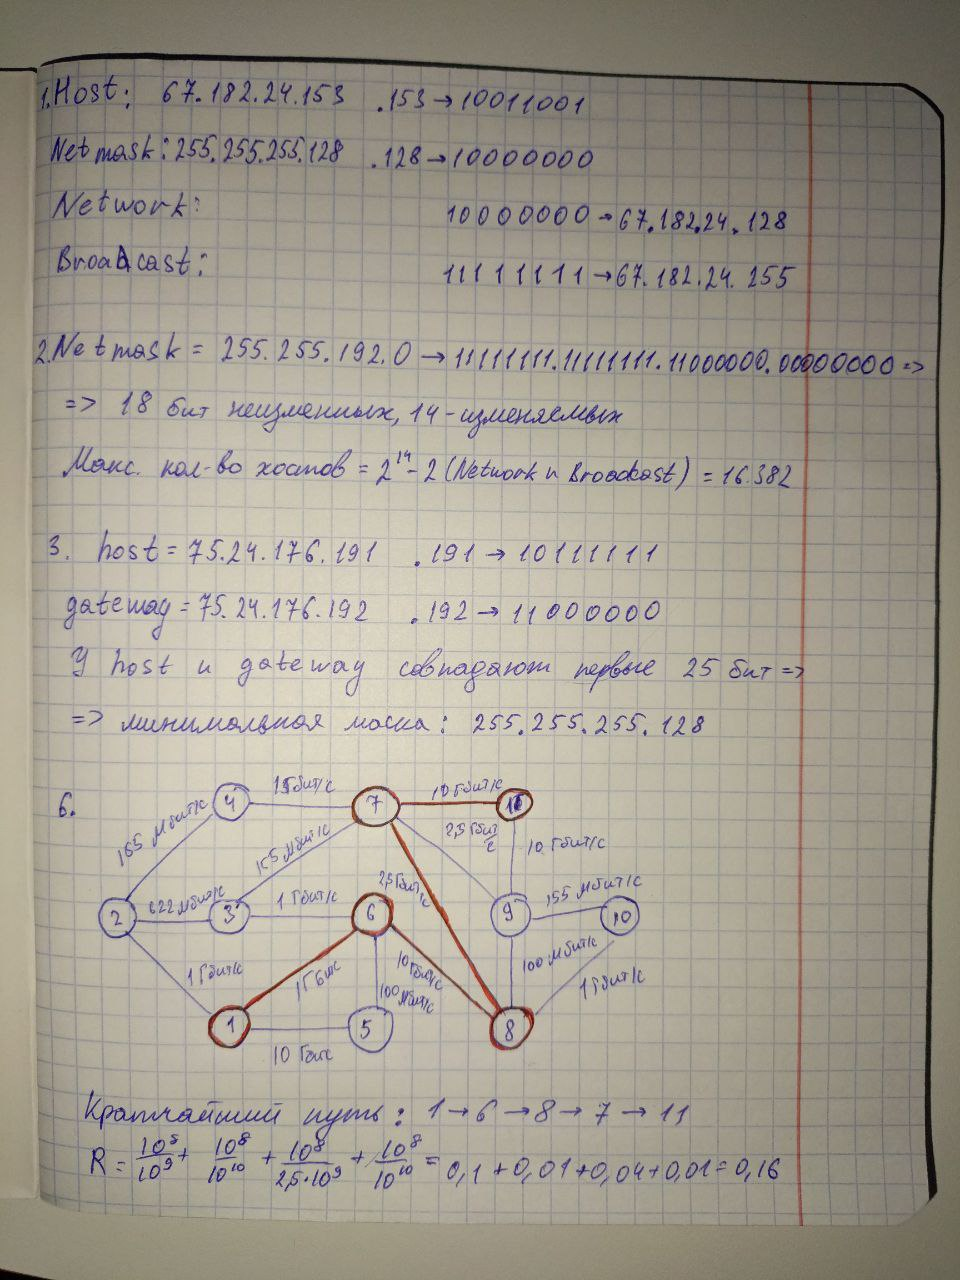 1. Host: 67.182.24.153 .153→10011001
Netmask: 255.255.255.128 .128→10000000
Network: 10000000→67.182.24.128
Broadcast: 11111111→67.182.24.255
2. Netmask = 255.255.192.0 → 11111111.11111111.11000000.00000000 =>
=> 18 бит неизменных, 14-изменяемых
Макс. кол-во хостов = 2¹⁴-2 (Network и Broadcast) = 16.382
3. host = 75.24.176.191 .191 → 10111111
gateway = 75.24.176.192 .192 → 11000000
У host и gateway совпадают первые 25 бит =>
=> минимальная маска: 255.255.255.128
6.
4 1Гбит/с 7 10 Гбит/с 11
155 Мбит/с 155 Мбит/с 2,5 Гбит/с 10 Гбит/с
622 Мбит/с 1 Гбит/с 2,5 Гбит/с 155 Мбит/с
2 3 6 9 10
1 Гбит/с 1Гбит/с 10 Гбит/с 100 Мбит/с 100 Мбит/с 1 Гбит/с
1 5 8
10 Гбит/с
Кратчайший путь: 1 → 6 → 8 → 7 → 11
R = 10⁸/10⁹ + 10⁸/10¹⁰ + 10⁸/2,5·10⁹ + 10⁸/10¹⁰ = 0,1 + 0,01 + 0,04 + 0,01 = 0,16